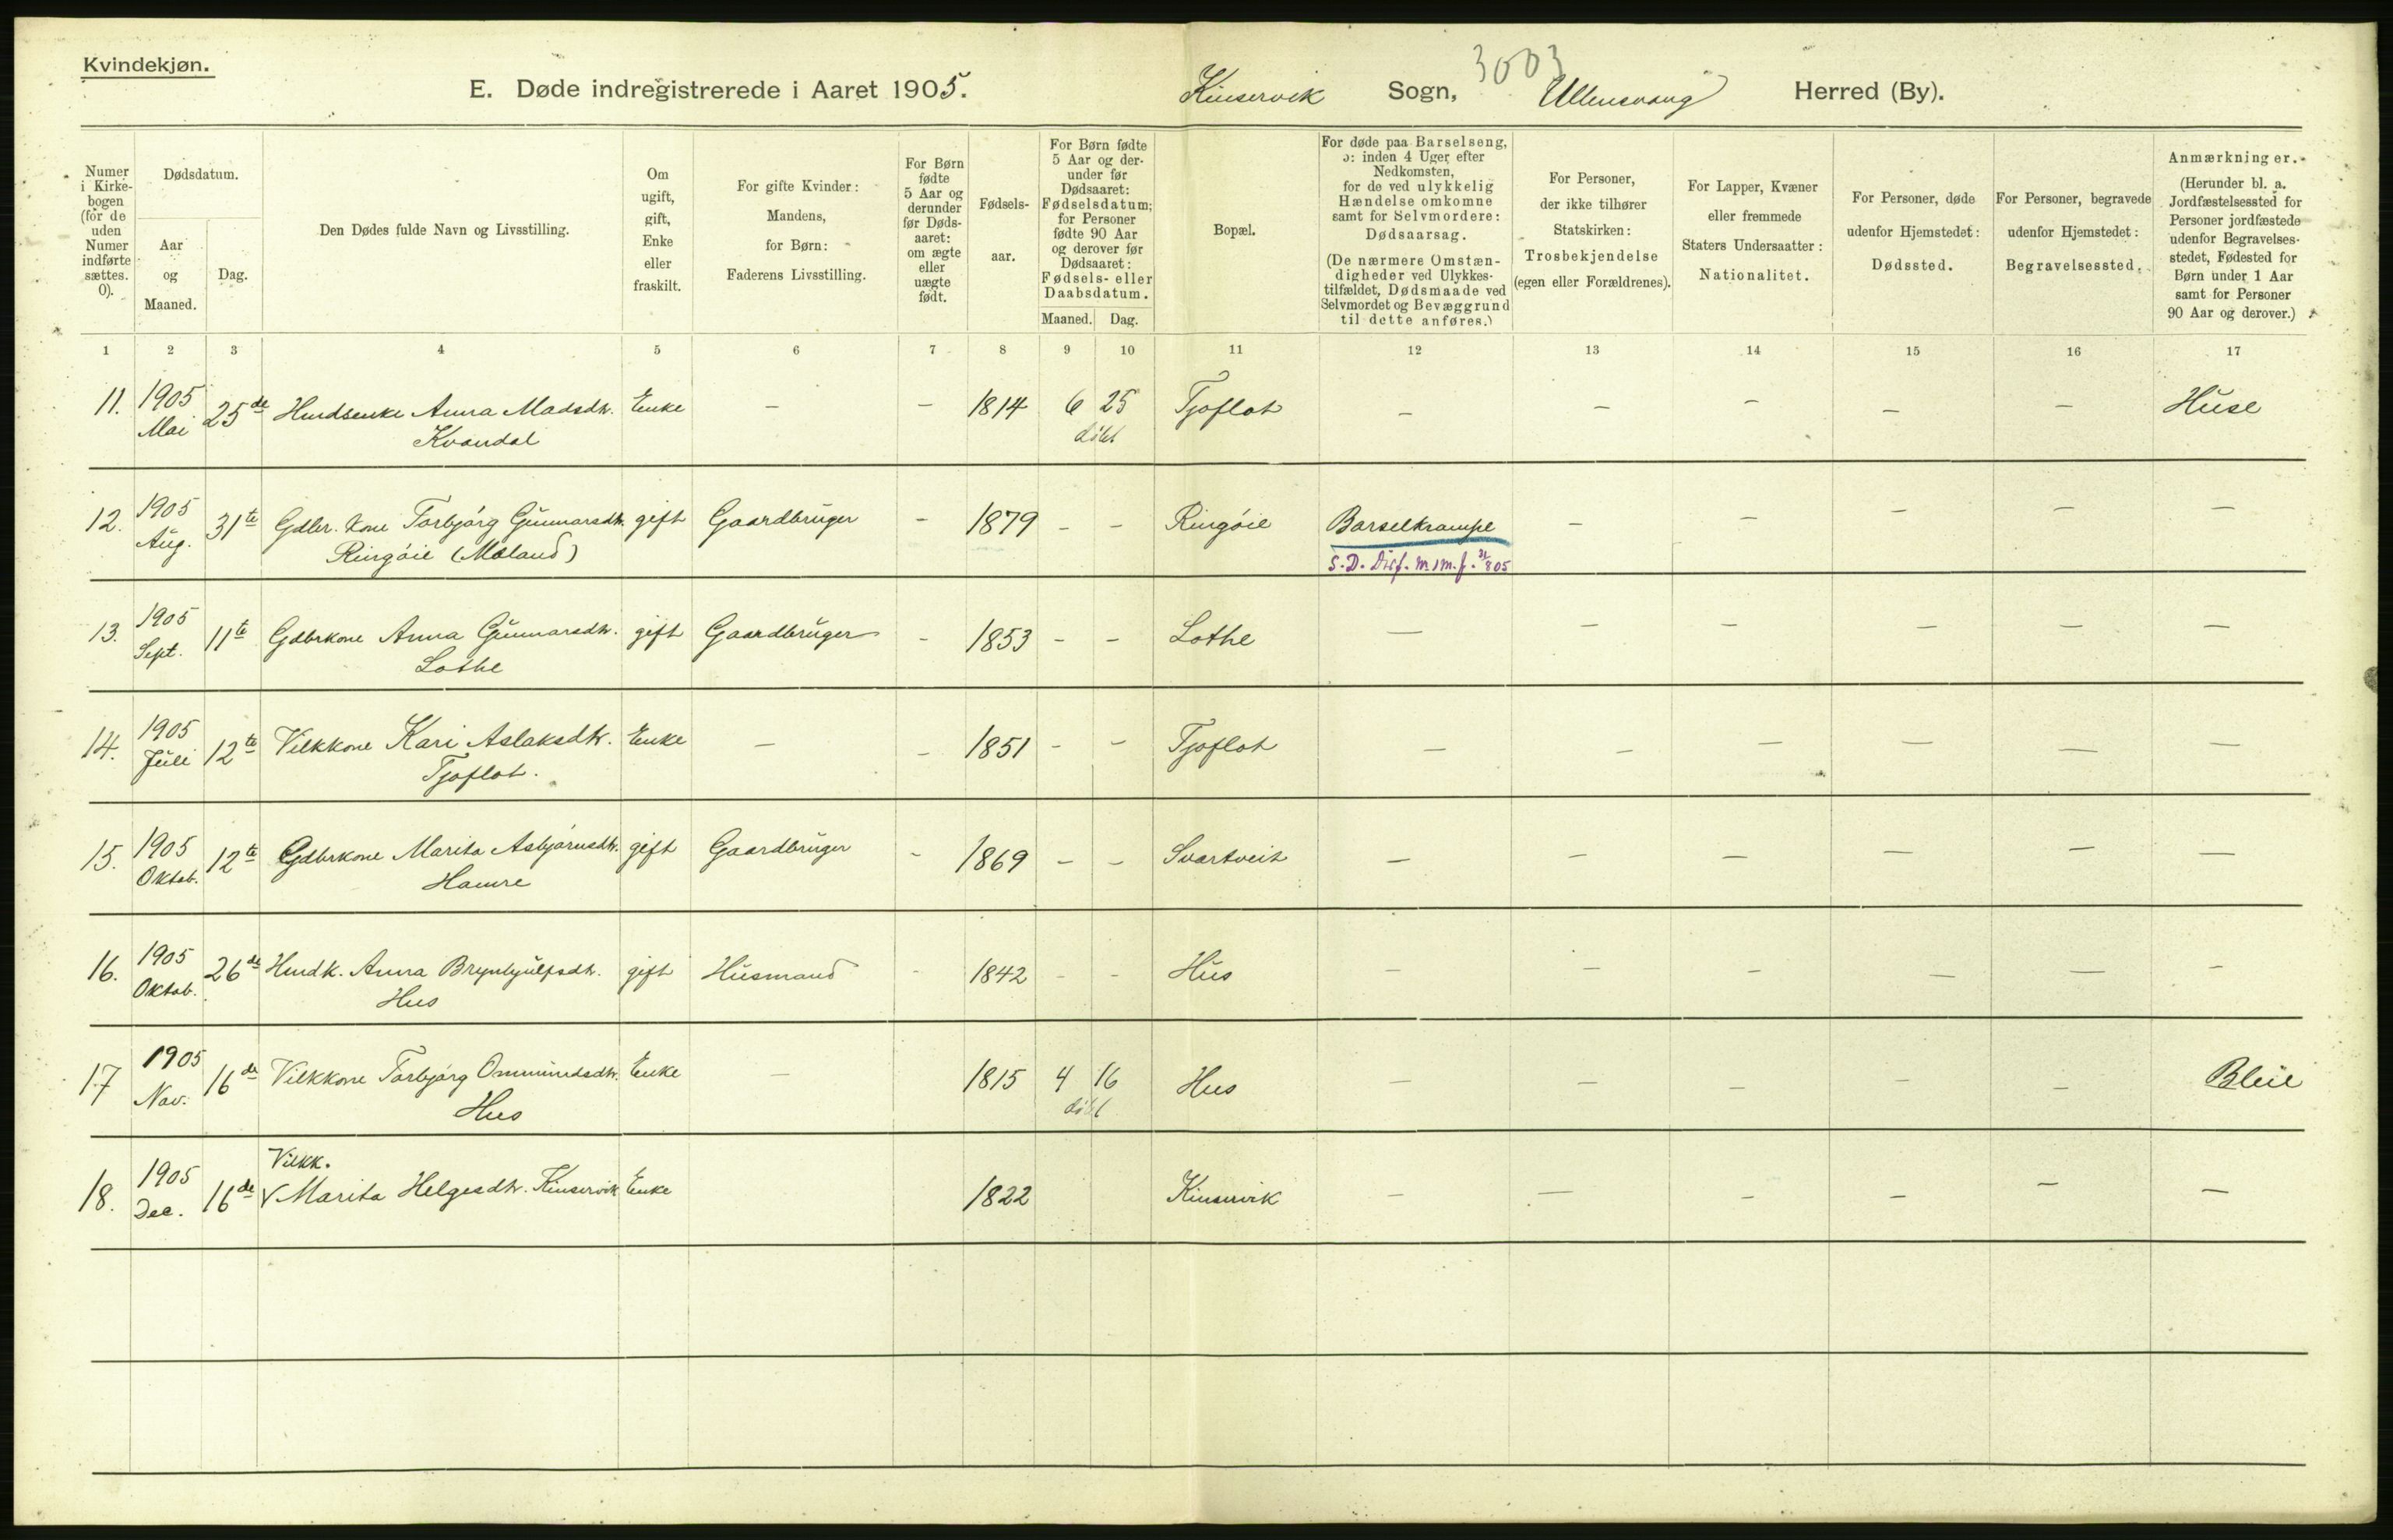 Kvindekjøn.
E. Døde indregistrerede i Aaret 1905.
Kinservik Sogn, Ullensvang Herred (By).
3003
Numer i Kirkebogen (for de uden Numer indførte sættes. 0).
Dødsdatum.
Aar og Maaned.
Dag.
Den Dødes fulde Navn og Livsstilling.
Om ugift, gift, Enke eller fraskilt.
For gifte Kvinder: Mandens, for Børn: Faderens Livsstilling.
For Børn fødte 5 Aar og derunder før Dødsaaret: om ægte eller uægte født.
Fødselsaar.
For Børn fødte 5 Aar og derunder før Dødsaaret: Fødselsdatum; for Personer fødte 90 Aar og derover før Dødsaaret: Fødsels- eller Daabsdatum.
Maaned. Dag.
Bopæl.
For døde paa Barselseng, ɔ: inden 4 Uger efter Nedkomsten, for de ved ulykkelig Hændelse omkomne samt for Selvmordere: Dødsaarsag.
(De nærmere Omstændigheder ved Ulykkestilfældet, Dødsmaade ved Selvmordet og Bevæggrund til dette anføres.)
For Personer, der ikke tilhører Statskirken: Trosbekjendelse (egen eller Forældrenes).
For Lapper, Kvæner eller fremmede Staters Undersaatter: Nationalitet.
For Personer, døde udenfor Hjemstedet: Dødssted.
For Personer, begravede udenfor Hjemstedet: Begravelsessted.
Anmærkninger.
(Herunder bl. a. Jordfæstelsessted for Personer jordfæstede udenfor Begravelsesstedet, Fødested for Børn under 1 Aar samt for Personer 90 Aar og derover.)
1 2 3 4 5 6 7 8 9 10 11 12 13 14 15 16 17
11. 1905 Mai 25de Hmdsenke Anna Madsdtr. Kvandal Enke – – 1814 6 25 døbt Tjoflot – – – – – Huse
12. 1905 Aug. 31te Gdbr. kone Torbjørg Gunnarsdtr. Ringøie (Maland) gift Gaardbruger – 1879 – – Ringøie Barselkrampe – – – – –
S. D. 31/8 05
13. 1905 Sept. 11te Gdbrkone Anna Gunnarsdtr. Lothe gift Gaardbruger – 1853 – – Lothe – – – – – –
14. 1905 Juli 12te Vilkkone Kari Aslaksdtr. Tjoflot. Enke – – 1851 – – Tjoflot – – – – – –
15. 1905 Oktob. 12te Gdbrkone Marita Asbjørnsdtr. Hamre gift Gaardbruger – 1869 – – Svartveit – – – – – –
16. 1905 Oktob. 26de Hmdk. Anna Brynhjulfsdtr. Hus gift Husmand – 1842 – – Hus – – – – – –
17 1905 Nov. 16de Vilkkone Torbjørg Ommundsdtr. Hus Enke – 1815 4 16 døbt Hus – – – – – Bleie
18. 1905 Dec. 16de Vilkk. Marita Helgesdtr. Kinservik Enke 1822 Kinservik – – – – – –